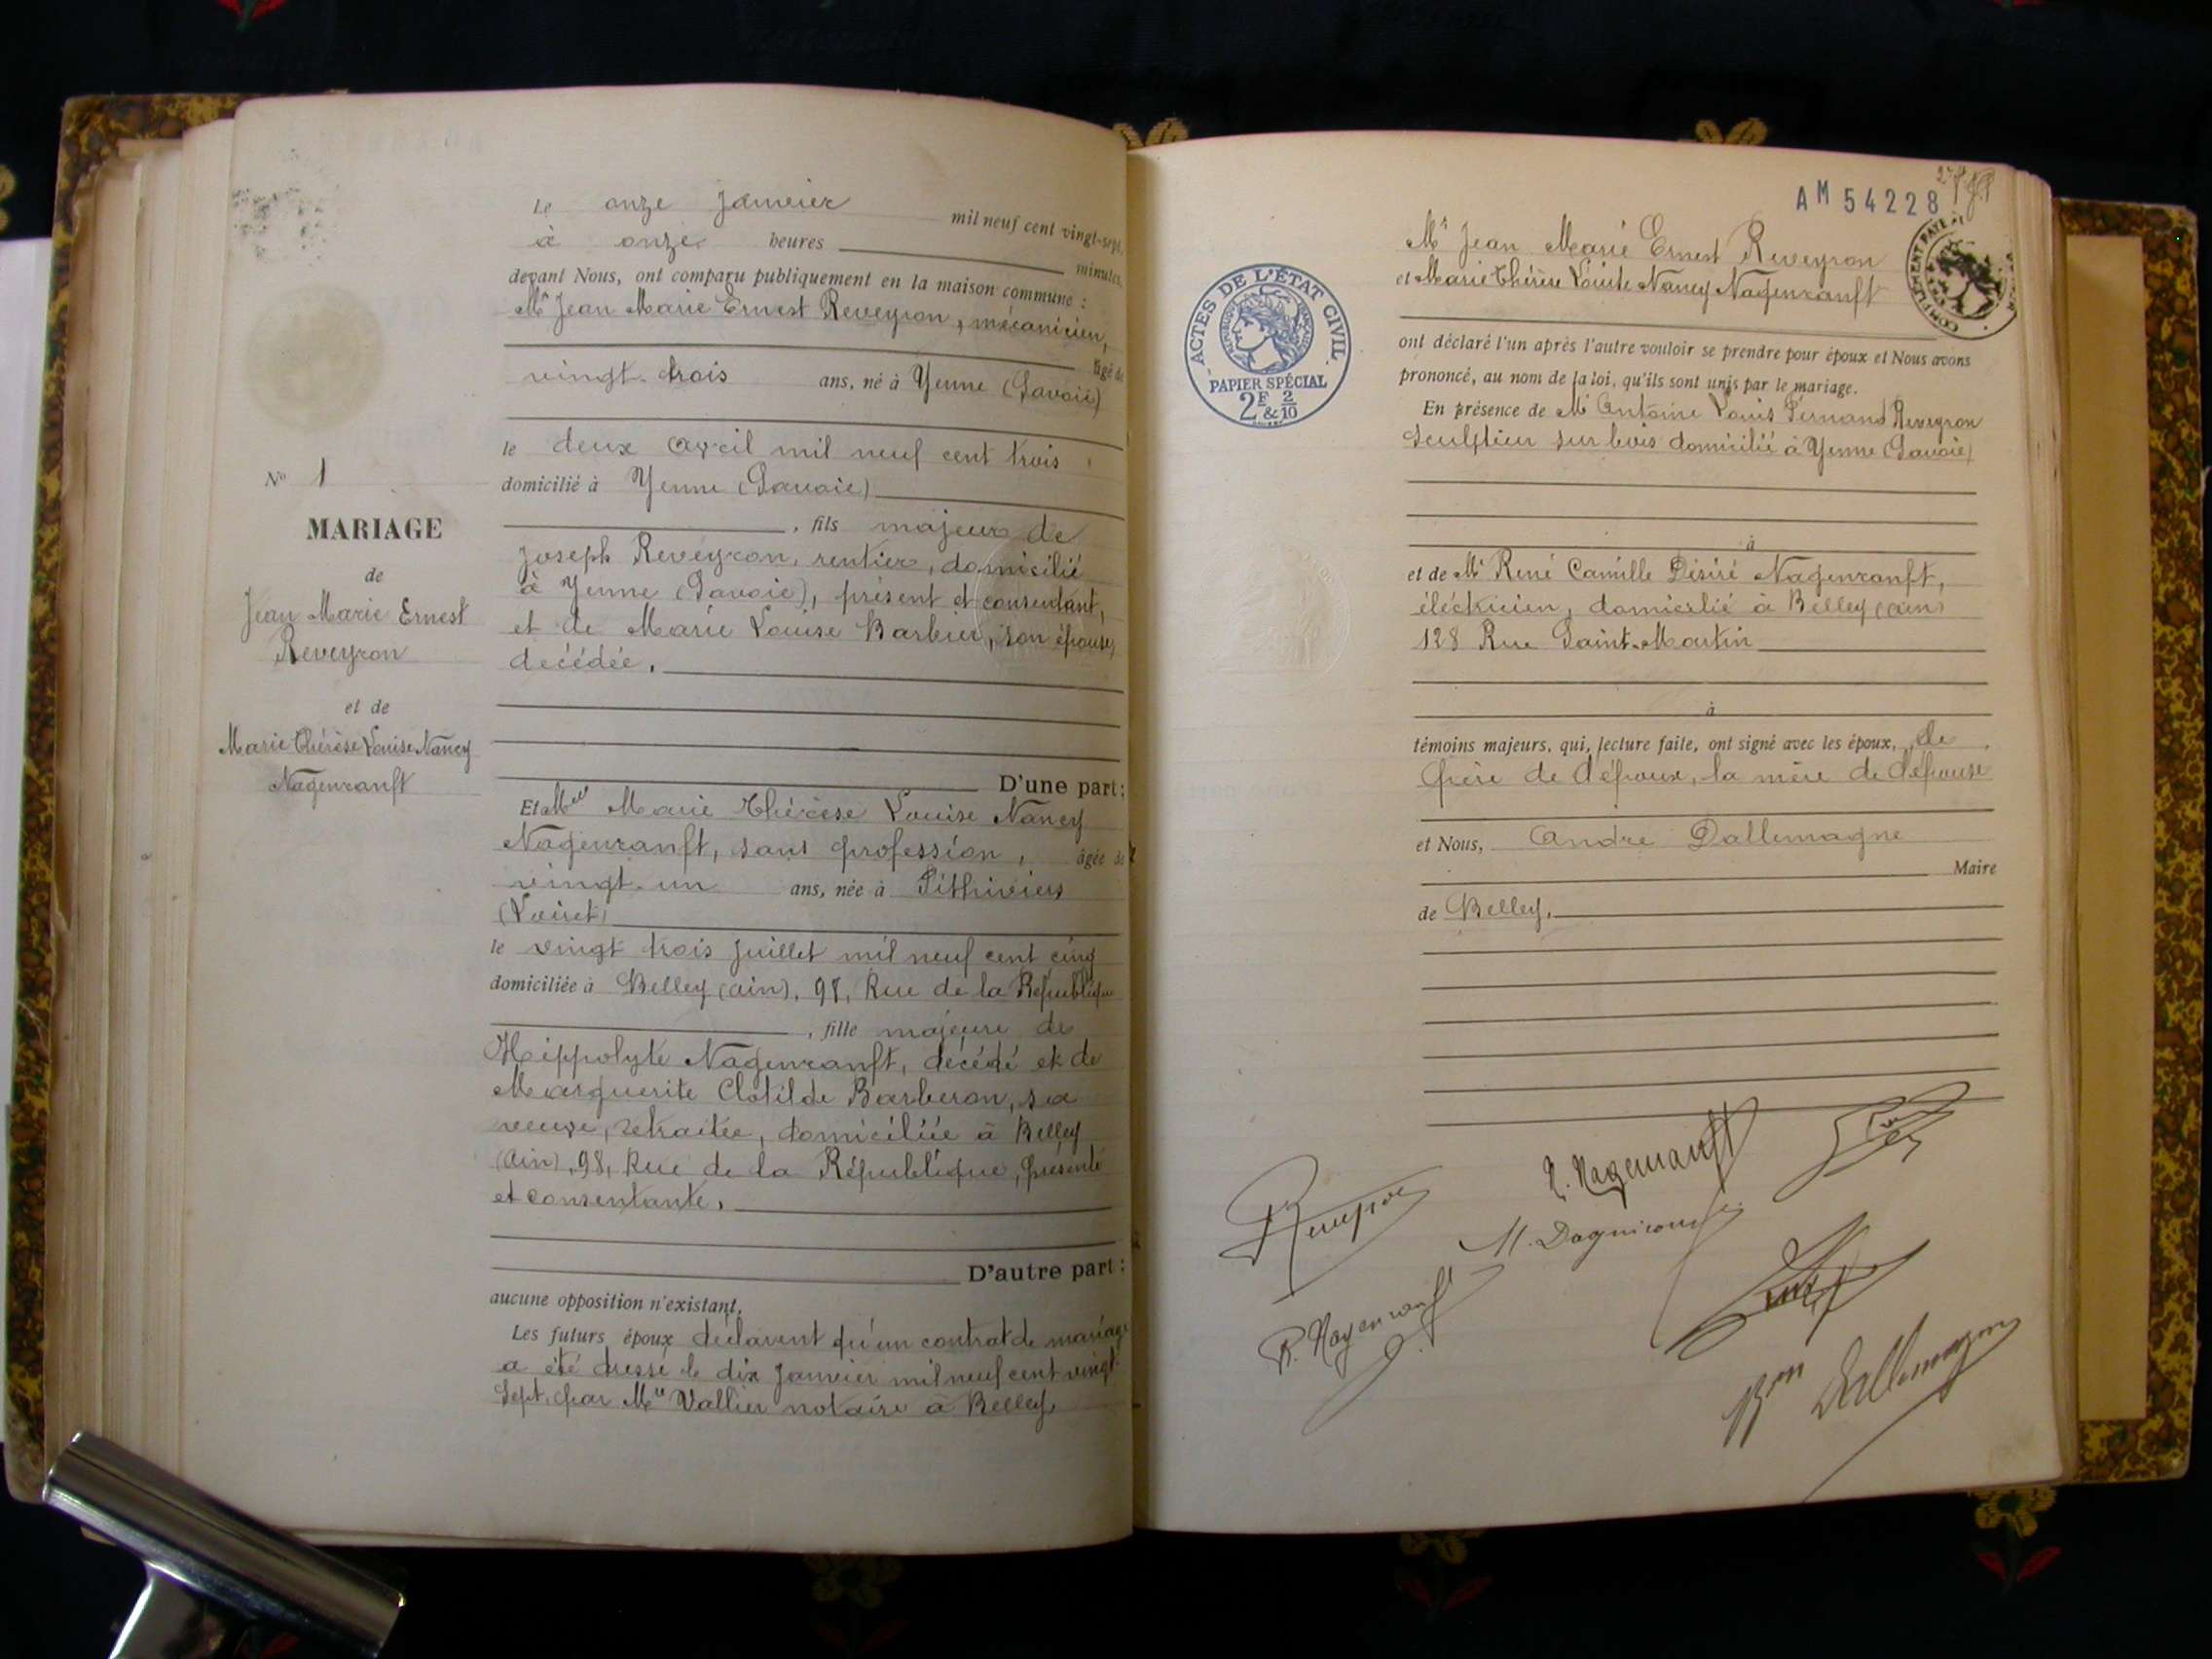 Le onze janvier mil neuf cent vingt-sept,
à onze heures minutes,
devant Nous, ont comparu publiquement en la maison commune :
Mr Jean Marie Ernest Reveyron, mécanicien,
âgé de
vingt-trois ans, né à Yenne (Savoie)
le deux avril mil neuf cent trois
domicilié à Yenne (Savoie)
, fils majeur de
Joseph Reveyron, rentier, domicilié
à Yenne (Savoie), présent et consentant,
et de Marie Louise Barbier, son épouse,
décédée.
D'une part ;
Et Mlle Marie Thérèse Louise Nancy
Nagenranft, sans profession, âgée de
vingt-un ans, née à Pithiviers
(Loiret)
le vingt trois juillet mil neuf cent cinq
domiciliée à Belley (Ain), 98, Rue de la République
, fille majeure de
Hippolyte Nagenranft, décédé et de
Marguerite Clotilde Barberon, sa
veuve, retraitée, domiciliée à Belley
(Ain), 98, Rue de la République, présente
et consentante.
D'autre part :
aucune opposition n'existant.
Les futurs époux déclarent qu'un contrat de mariage
a été dressé le dix janvier mil neuf cent vingt-
sept, par Me Vallier notaire à Belley.
No 1
MARIAGE
de
Jean Marie Ernest
Reveyron
et de
Marie Thérèse Louise Nancy
Nagenranft
AM 54228
COMPLÉMENT PAYÉ
ACTES DE L'ÉTAT CIVIL
RÉPUBLIQUE FRANÇAISE
PAPIER SPÉCIAL
2F & 2/10
Mr Jean Marie Ernest Reveyron
et Marie Thérèse Louise Nancy Nagenranft
ont déclaré l'un après l'autre vouloir se prendre pour époux et Nous avons
prononcé, au nom de la loi, qu'ils sont unis par le mariage.
En présence de Mr Antoine Louis Fernand Reveyron
sculpteur sur bois domicilié à Yenne (Savoie)
à
et de Mr René Camille Désiré Nagenranft,
électricien, domicilié à Belley (Ain)
128 Rue Saint-Martin
à
témoins majeurs, qui, lecture faite, ont signé avec les époux, le
père de l'époux, la mère de l'épouse
et Nous, André Dallemagne
Maire
de Belley.
Reveyron
R. Nagenranft
Bon Dallemagne